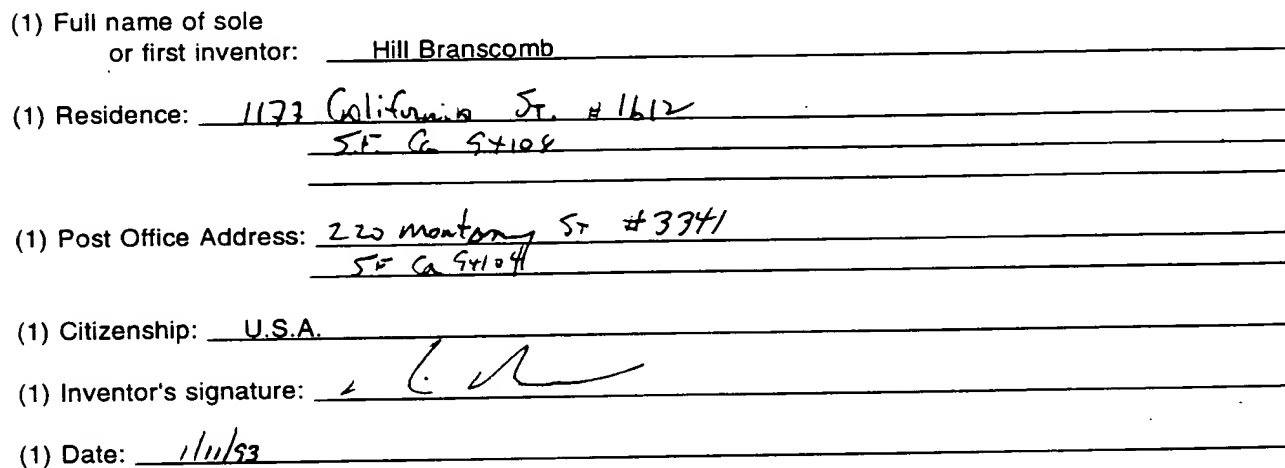 (1) Full name of sole
or first inventor: Hill Branscomb
(1) Residence: 1177 California St. # 1612
S.F. Ca 94108
(1) Post Office Address: 220 Montgomery St #3341
SF Ca 94104
(1) Citizenship: U.S.A.
(1) Inventor's signature:
(1) Date: 1/11/93